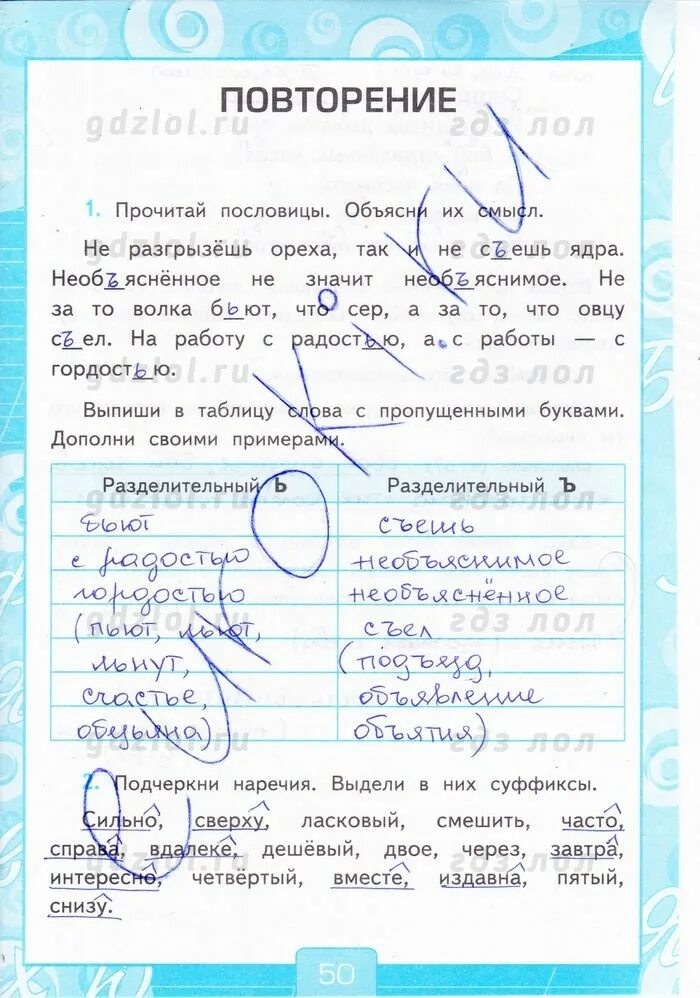 ПОВТОРЕНИЕ
gdzlol.ru гдз лол
1. Прочитай пословицы. Объясни их смысл.
Не разгрызёшь ореха, так и не съешь ядра.
Необъяснённое не значит необъяснимое. Не
за то волка бьют, что сер, а за то, что овцу
съел. На работу с радостью, а с работы — с
гордостью.
gdzlol.ru гдз лол
Выпиши в таблицу слова с пропущенными буквами.
Дополни своими примерами.
Разделительный Ь Разделительный Ъ
gdzlol.ru гдз лол
бьют съешь
с радостью необъяснимое
гордостью необъяснённое
gdzlol.ru гдз лол
(пьют, льют, съел
льнут, (подъезд,
счастье, объявление
обезьяна) объятия)
gdzlol.ru гдз лол
2. Подчеркни наречия. Выдели в них суффиксы.
Сильно, сверху, ласковый, смешить, часто,
справа, вдалеке, дешёвый, двое, через, завтра,
интересно, четвёртый, вместе, издавна, пятый,
снизу.
gdzlol.ru гдз лол
50